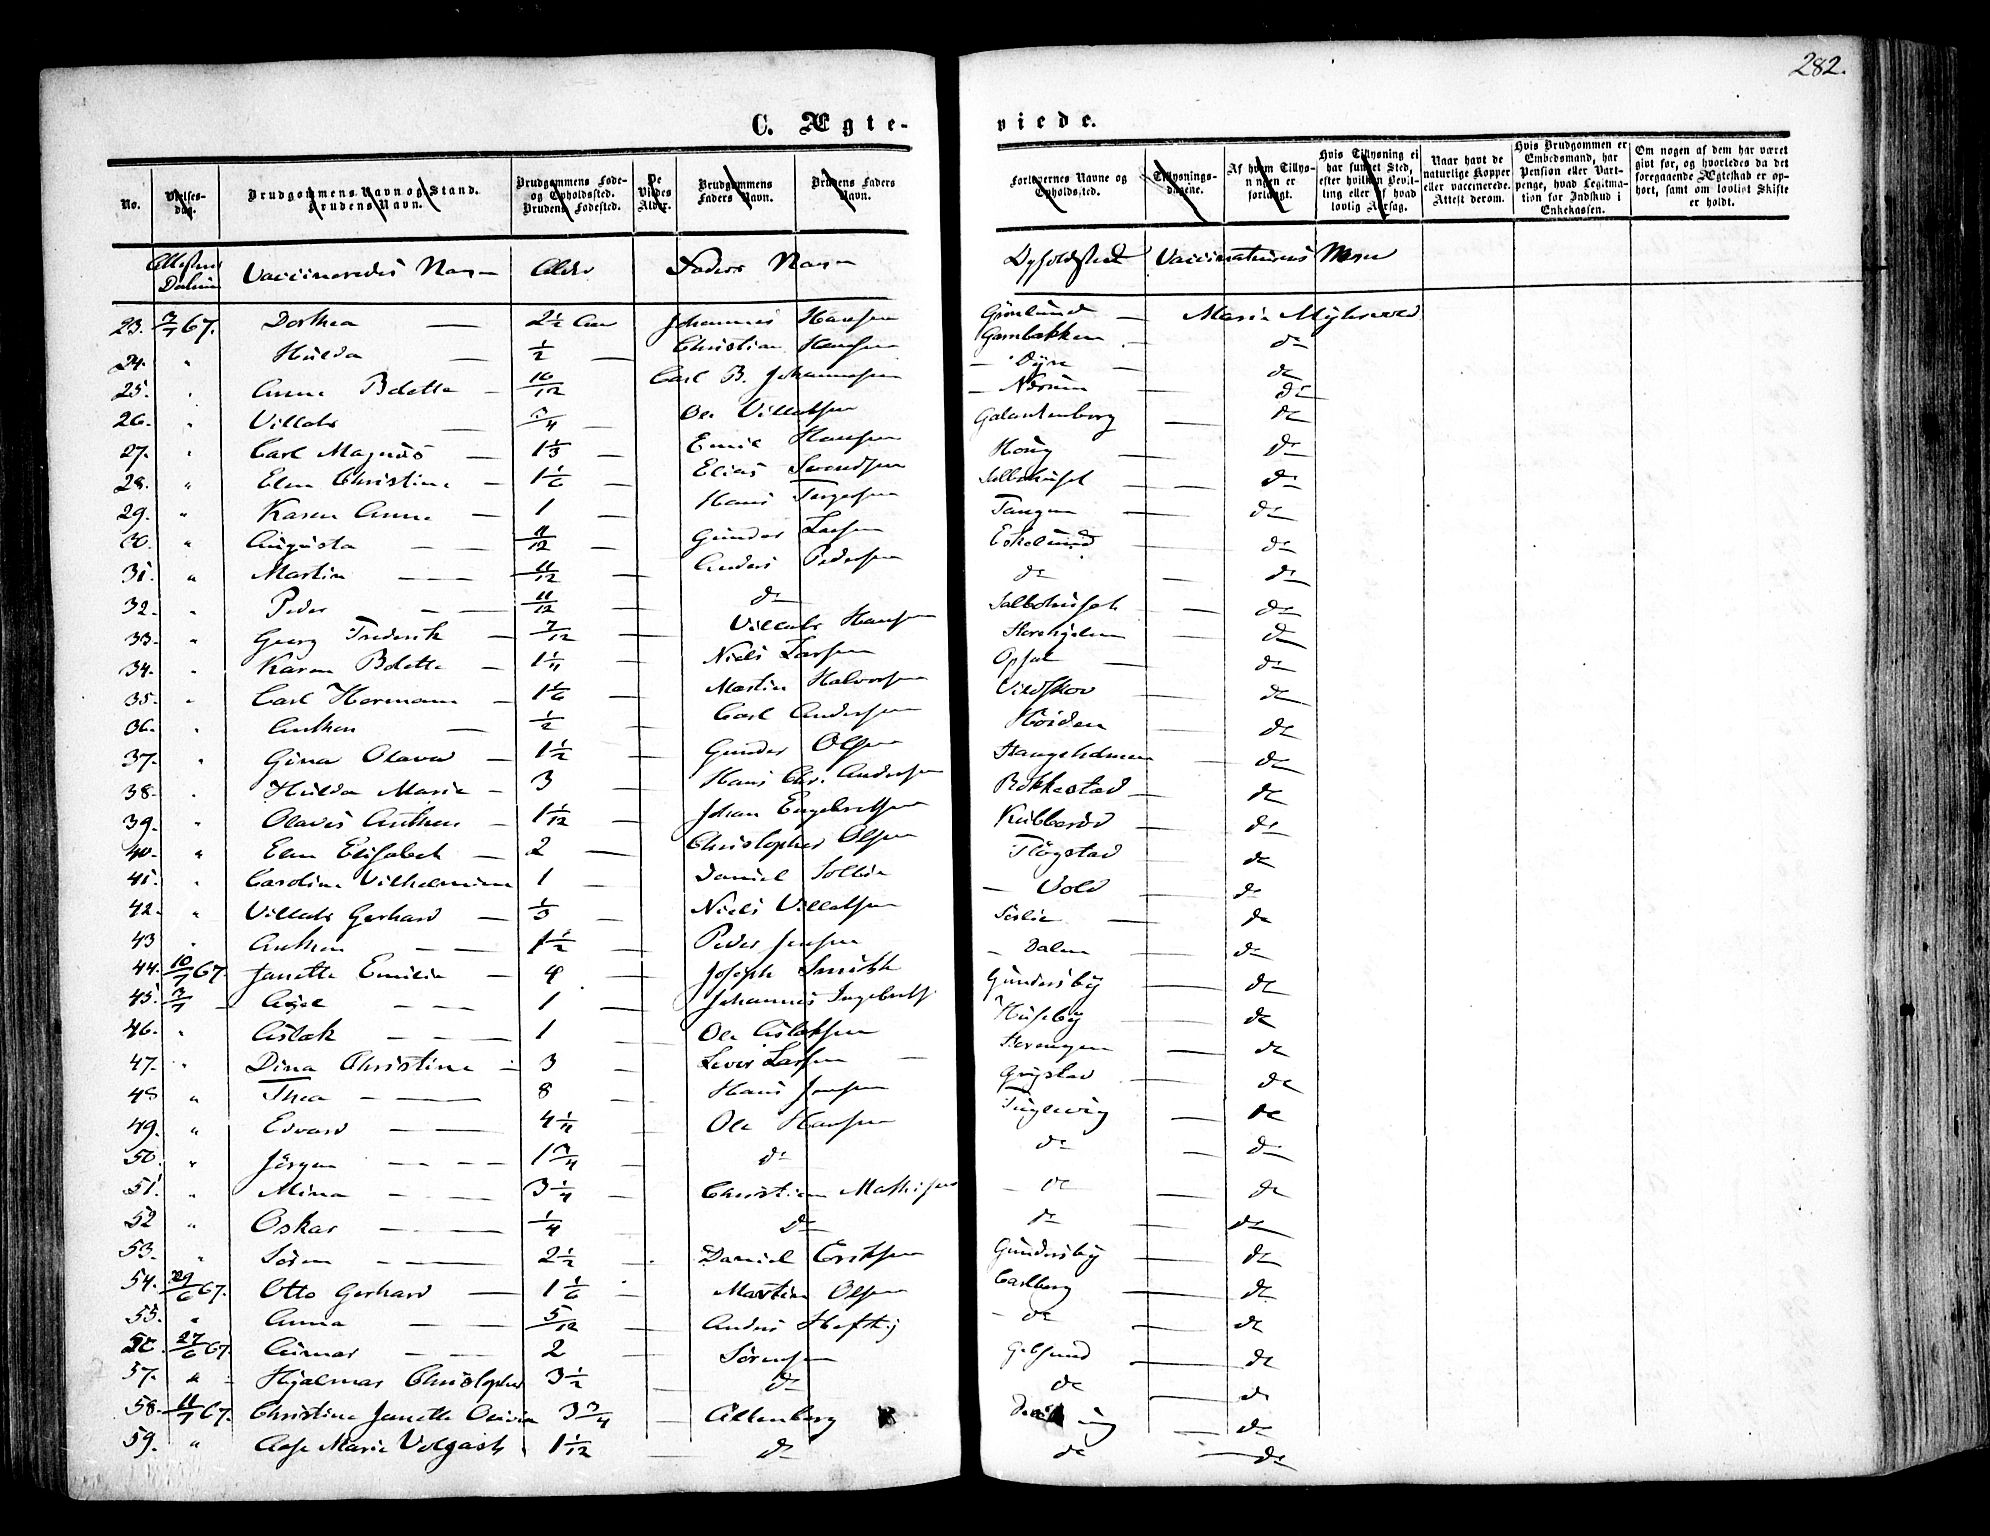 282.
C. Ægte-
viede.
No.
Vielses-dag.
Brudgommens Navn og Stand. Brudens Navn.
Brudgommens Føde- og Opholdssted. Brudens Fødested.
De Viedes Alder.
Brudgommens Faders Navn.
Brudens Faders Navn.
Forlovernes Navne og Opholdssted.
Tillysnings-dagene.
Af hvem Tillysningen er forlangt.
Hvis Tillysning ei har fundet Sted, efter hvilken Bevilling eller af hvad lovlig Aarsag.
Naar havt de naturlige Kopper eller vaccinerede. Attest derom.
Hvis Brudgommen er Embedsmand, har Pension eller Vartpenge, hvad Legitimation for Indskud i Enkekassen.
Om nogen af dem har været givt før, og hvorledes da det foregaaende Ægteskab er ophørt, samt om lovligt Skifte er holdt.
Attestens Datum Vaccineredes Navn Alder Faders Navn Opholdssted Vaccinateurens Navn
23. 3/7 67. Dorthea — 2 1/2 Aar Johannes Hansen Grönlund — Maria
24. " Hulda — 1/2 — Christian Hansen Gambakken — do
25. " Anne Bolette — 10/12 Carl B. Johannesen — Dyre — do
26. " Villats — 3/4 — Ole Villatsen — Nærum — do
27. " Carl Magnus — 1 1/3 — Emil Hansen Galautenborg — do
28. " Elen Christine — 1 1/6 — Elias Svendsen Houg — do
29. " Karen Anne — 1 — Hans Torgersen — do
30. " Augusta — 11/12 — Gunder Larsen Tangen — do
31. " Martin — 11/12 — Anders Pedersen Eskelund — do
32. " Peder — 11/12 — do do — do
33. " Georg Frederik — 7/12 — Villats Hansen — do
34. " Karen Bolette — 1 1/4 — Niels Larsen — do
35. " Carl Hermann — 1 1/6 — Martin Halvorsen Opsal — do
36. " Anthon — 1/2 — Carl Andersen Vidskov — do
37. " Gina Olava — 1 1/2 — Gunder Olsen — do
38. " Hulda Marie — 3 — Hans Chr. Andersen Hangeholmen — do
39. " Olaves Anthon — 1 1/12 — Johan Engebretsen Rokkestad — do
40. " Elen Elisabet — 2 — Christopher Olsen Kubberöd — do
41. " Caroline Vilhelmine 1 — Daniel Sollie Flögstad — do
42. " Villats Gerhard — 1/3 — Niels Villatsen — Vold — do
43 " Anthon — 1 1/2 — Peder Jensen — do
44. 10/7 67. Janette Emilie — 4 Joseph Smith — Dalen — do
45. 3/7 — Axel — 1 — Johannes Ingebrets. Gundersby do
46. " Aslak — 1 — Ole Aslaksen Huseby — do
47. " Dina Christine — 3 — Lever Larsen — do
48 " Thea — 8 — Hans Jensen Grystad — do
49. " Edvard — 4 1/4 — Ole Hansen Fuglevig — do
50. " Jörgen — 1 3/4 — do do — do
51. " Mina — 3 1/4 — Christian Mathisen — do — do
52 " Oskar — 1/4 — do do — do
53. " Sören — 2 1/2 — Daniel Eriksen Gundersby — do
54. 29/6 67. Otto Gerhard — 1 1/6 — Martin Olsen Carlberg — do
55. " Anna — 5/12 — Anders Hefthy — do — do
56. 27/6 67. — 2 Sörensen Gelsund — do
57. " Hjalmar Christopher 3 1/2 — do do — do
58. 11/7 67. Christine Janette Olivia 3 3/4 — Altenberg — do
59. " Aase Marie Volgast 1 1/12 — do do — do